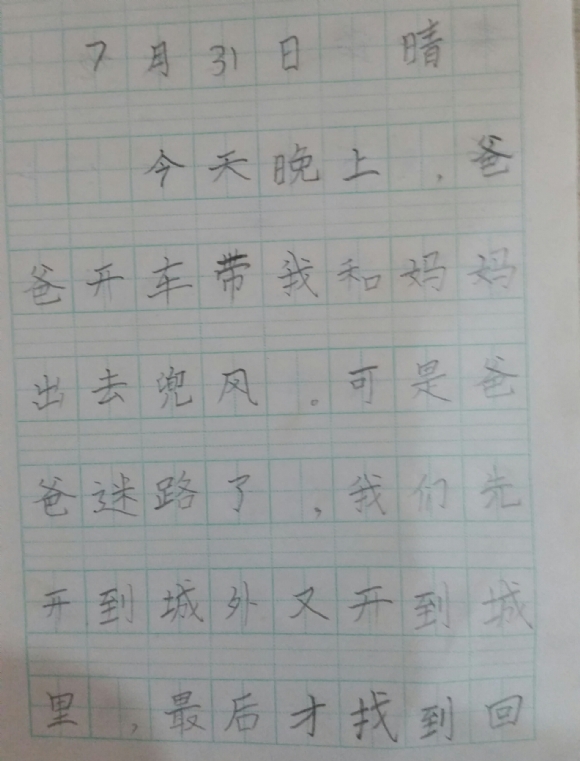 7月31日 晴
今天晚上,爸
爸开车带我和妈妈
出去兜风。可是爸
爸迷路了,我们先
开到城外又开到城
里,最后才找到回